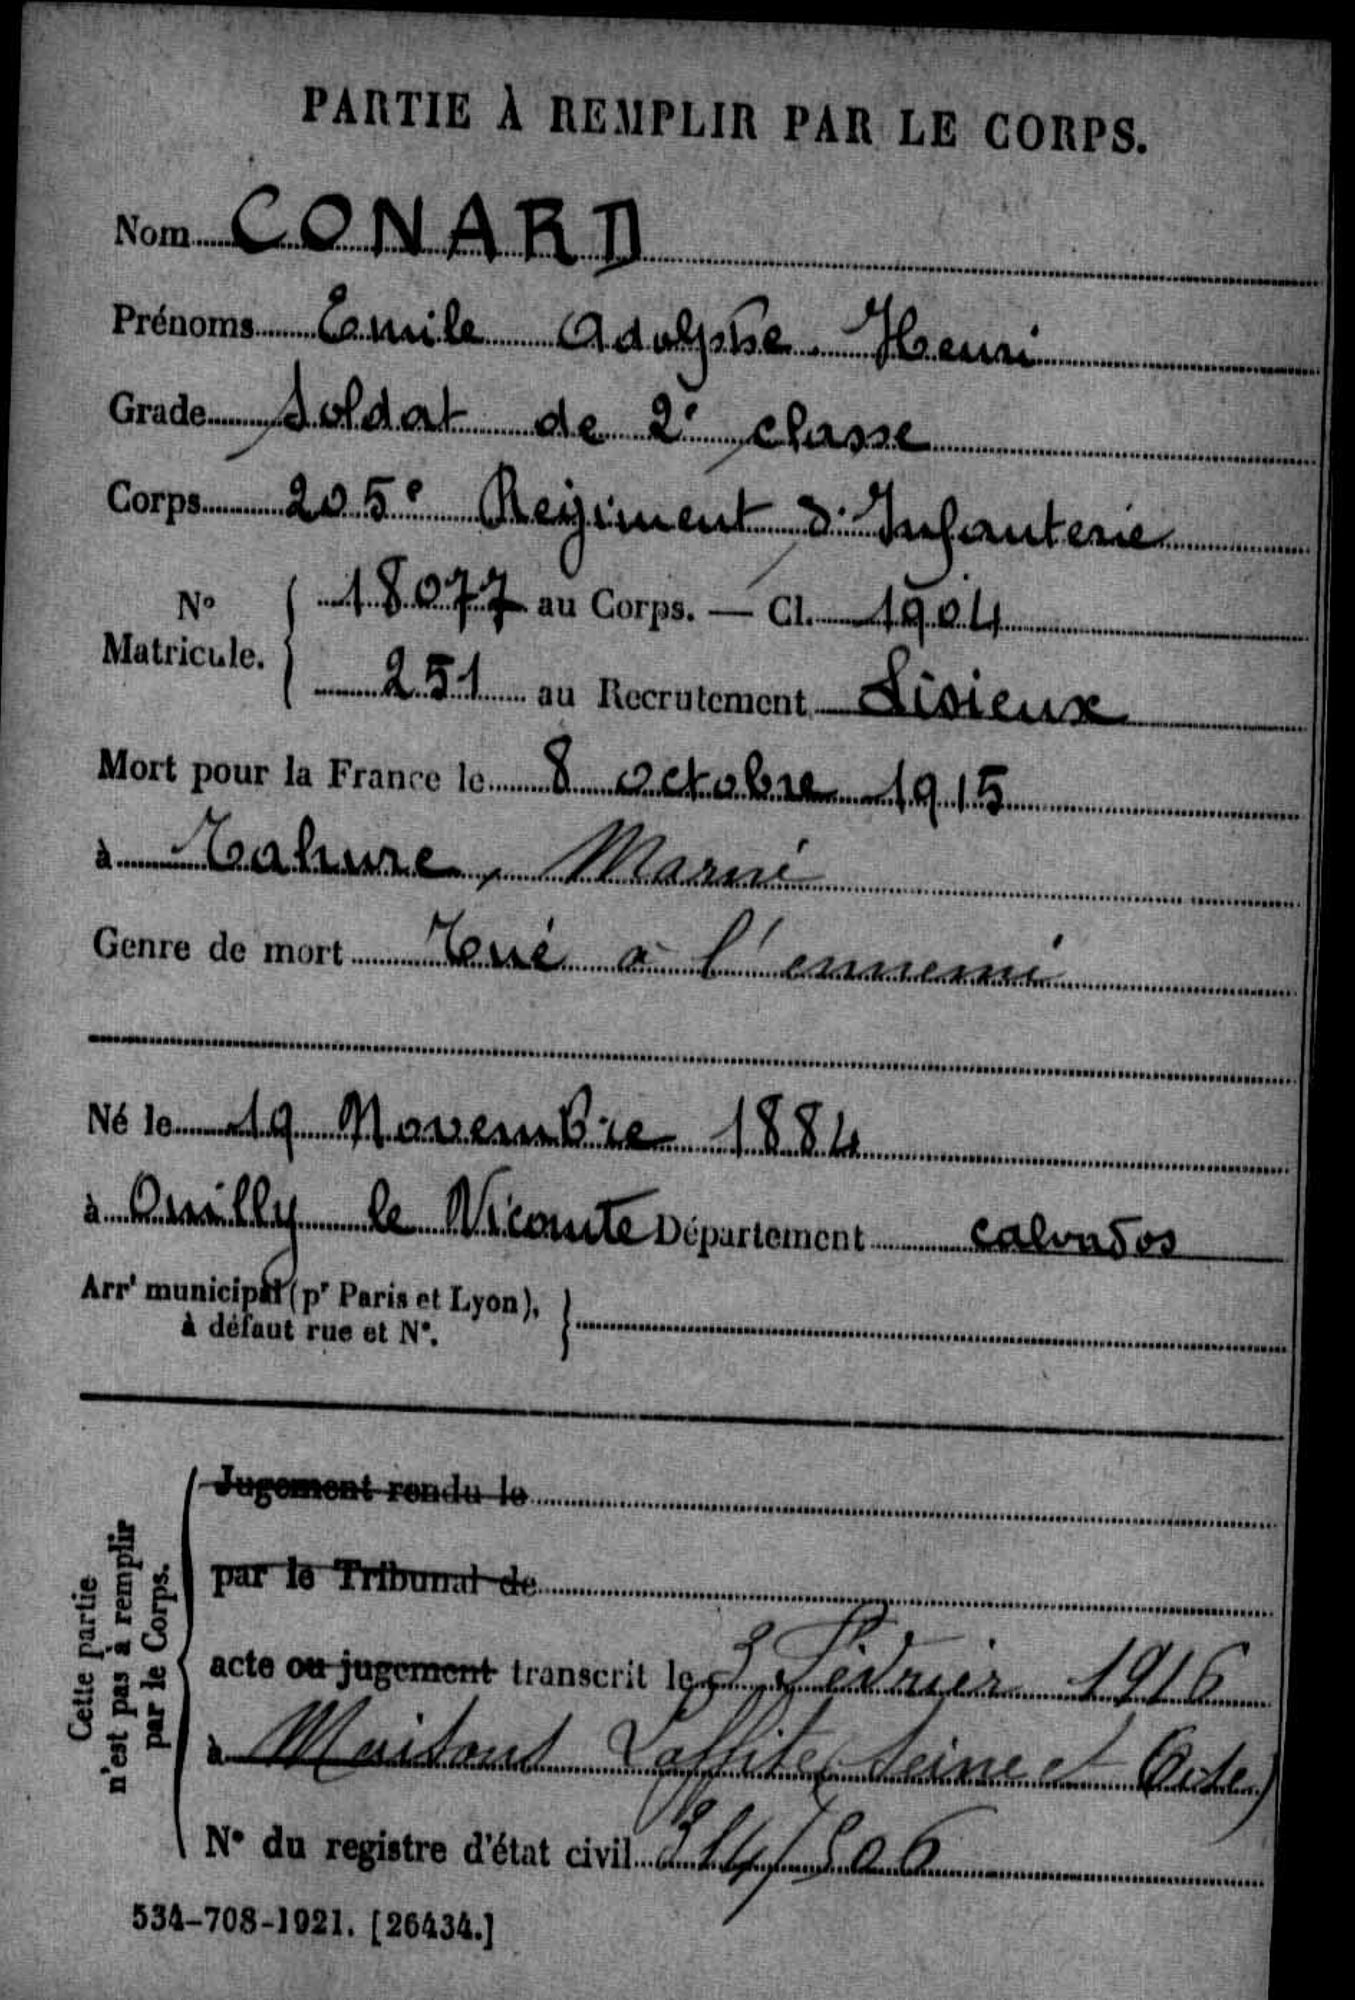 PARTIE À REMPLIR PAR LE CORPS.
Nom CONARD
Prénoms Emile Adolphe Henri
Grade Soldat de 2e classe
Corps 205e Régiment d'Infanterie
No Matricule. { 18077 au Corps. — Cl. 1904
251 au Recrutement Lisieux
Mort pour la France le 8 octobre 1915
à Tahure, Marne
Genre de mort Tué à l'ennemi
Né le 19 Novembre 1884
à Ouilly le Vicomte Département calvados
Arrt municipal (pr Paris et Lyon),
à défaut rue et No.
Cette partie
n'est pas à remplir
par le Corps.
Jugement rendu le
par le Tribunal de
acte ou jugement transcrit le 3 Février 1916
à Maisons Laffite (Seine et Oise)
No du registre d'état civil 314/506
534-708-1921. [26434.]